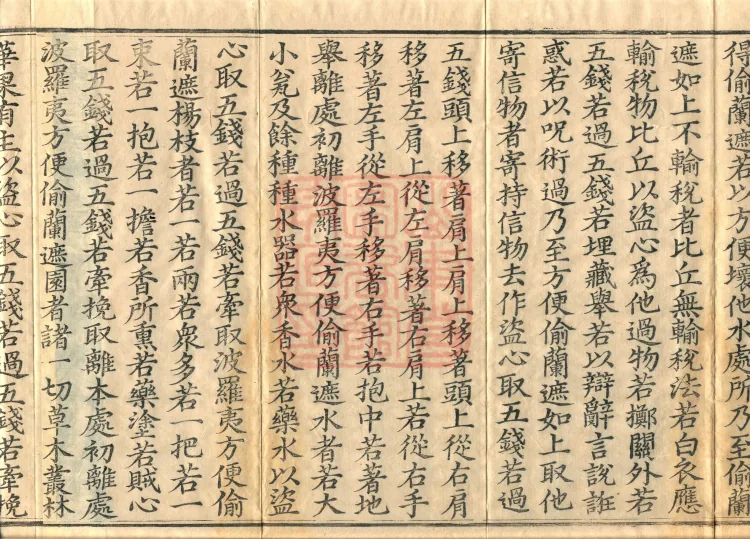 得偷蘭遮若以方便壞他水處所乃至偷蘭
遮如上不輸稅者比丘無輸稅法若白衣應
輸稅物比丘以盜心爲他過物若擲關外若
五錢若過五錢若埋藏舉若以辯辭言說誑
惑若以呪術過乃至方便偷蘭遮如上取他
寄信物者寄持信物去作盜心取五錢若過
五錢頭上移著肩上肩上移著頭上從右肩
移著左肩上從左肩移著右肩上若從右手
移著左手從左手移著右手若抱中若著地
舉離處初離波羅夷方便偷蘭遮水者若大
小瓮及餘種種水器若衆香水若藥水以盜
心取五錢若過五錢若牽取波羅夷方便偷
蘭遮楊枝者若一若兩若衆多若一把若一
束若一抱若一擔若香所熏若藥塗若賊心
取五錢若過五錢若牽挽取離本處初離處
波羅夷方便偷蘭遮園者諸一切草木叢林
華果有主以盜心取五錢若過五錢若牽挽